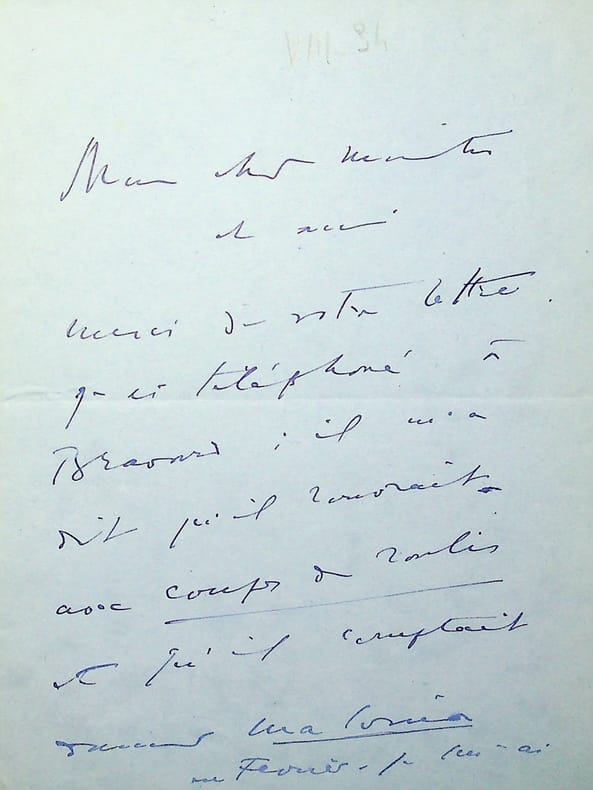 VIII-34
Mon cher maître
et ami
merci de votre lettre.
j'ai téléphoné à
Bravard ; il m'a
dit qu'il rouvrait
avec coups de roulis
et qu'il comptait
donner Malvina
en Février. je lui ai